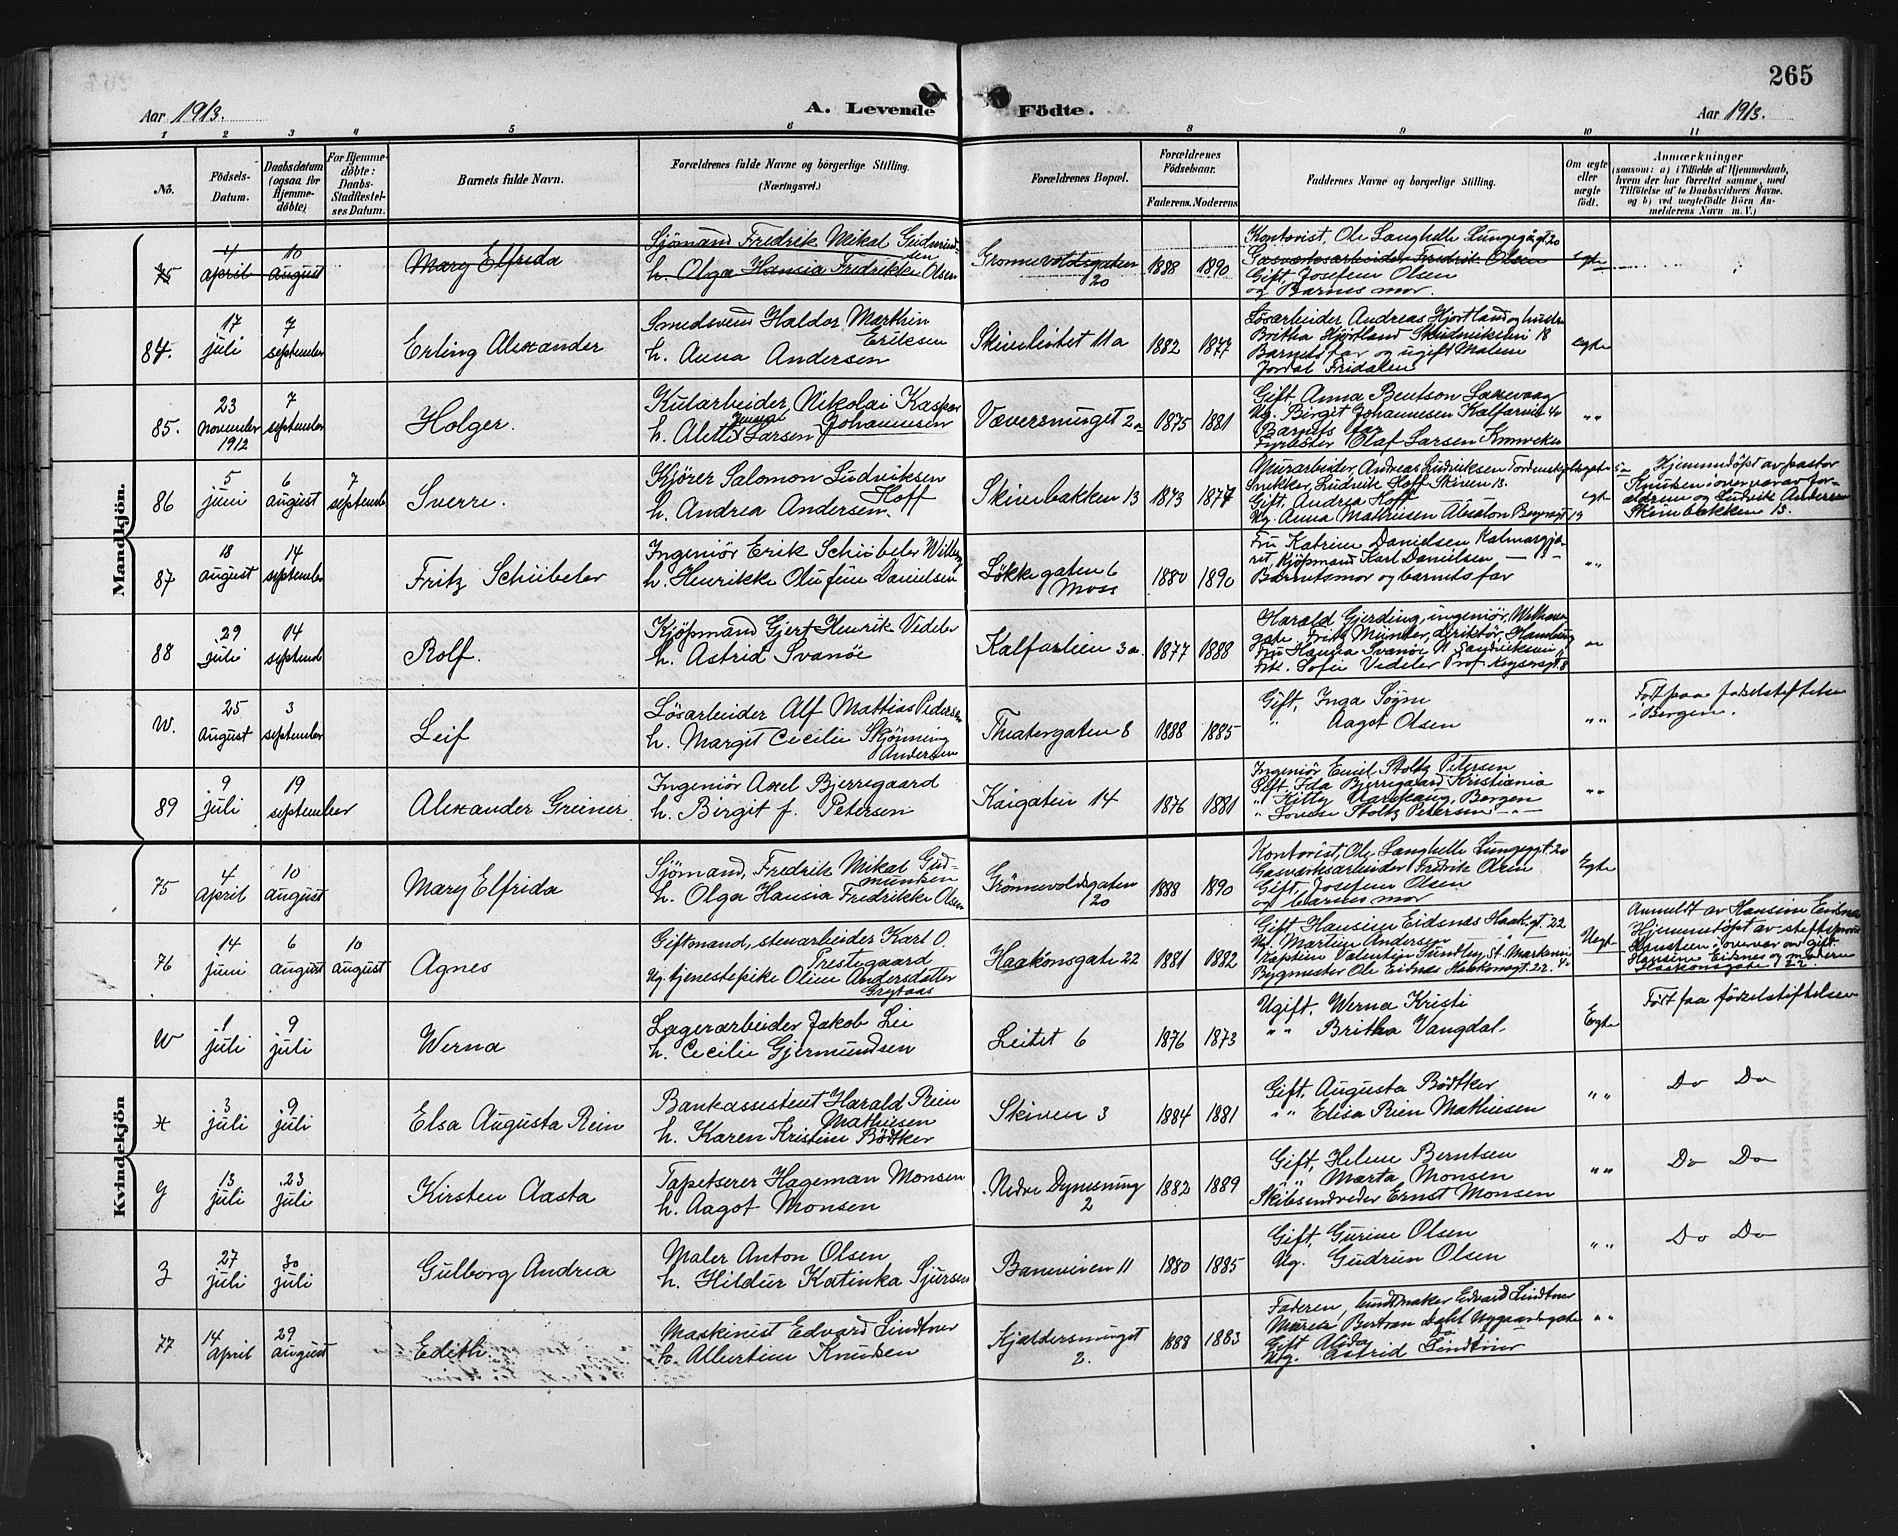 265
Aar 1913.
A. Levende Födte.
Aar 1913.
1 2 3 4 5 6 8 9 10 11
No.
Födsels-Datum.
Daabsdatum (ogsaa for Hjemmedöbte)
For Hjemmedöbte: Daabs-Stadfæstelses Datum.
Barnets fulde Navn.
Forældrenes fulde Navne og borgerlige Stilling.
(Næringsvei.)
Forældrenes Bopæl.
Forældrenes Födselsaar.
Faderens. Moderens
Faddernes Navne og borgerlige Stilling.
Om ægte eller uægte födt.
Anmærkninger
(saasom: a) i Tilfælde af Hjemmedaab, hvem der har forrettet samme, med Tilföielse af to Daabsvidners Navne. og b) ved uægtefödte Börn Anmelderens Navn m. V.)
Mandkjön.
75 4 april 10 august Mary Elfrida
Sjömand Fredrik Mikal Gudmundsen
h. Olga Hansia Fredrikke Olsen
Grönnevoldsgaten 20 1888 1890
Kontorist, Ole Langhelle Lungegågt 20
Gasværksarbeider Fredrik Olsen
Gift, Josefine Olsen
og Barnes mor.
egte
84. 17 juli 7 september Erling Alexander
Smedsvend Haldor Marthin Eriksen
h. Anna Andersen
Skivebötet 11a 1882 1877
Lösarbeider Andreas Hjortland og hustru
Britha Hjortland Skudeviksvei 18
Barnets far og ugift Malene
Jordal Fridalen
egte
85. 23 november 1912 7 september Holger.
Kularbeider Nikolai Kaspar Johannesen
h. Alette Larsen
Væversmuget 2a 1875 1881
Gift Anna Bentson Laxevaag
Ug. Birgit Johannesen Kalfarvei 40
Barnets far
Fyrböter Olaf Larsen
" "
86 5 juni 6 august 7 september Sverre.
Kjörer Salomon Ludviksen Hoff
h. Andrea Andersen
Skivebakken 13 1873 1877
Murarbeider, Andreas Ludviksen
Snekker, Ludvik Hoff Skiven 13.
Gift, Andrea Hoff
Ug. Anna Mathiesen
egte
Hjemmedöpt av pastor
Knutsen i overvær av forældrene og Ludvik Andersen
Skivebakken 13.
87 18 august 14 september Fritz Schübeler
Ingeniör Erik Schübeler Wilberg
h. Henrikke Olufine Danielsen
Løkkegaten 6
Moss
1880 1890
Fru Katrine Danielsen Kalmargjaret, Kjöpmand Karl Danielsen — " —
Barnets mor og barnets far
" "
88 29 juli 14 septemb Rolf.
Kjöpmand Gjert Henrik Vedeler
h. Astrid Svanöe
Kalfarlien 3a. 1877 1888
Harald Gjerding, ingeniör,
gate Fritz Münster, direktör, Hamburg
Fru Hansia Svanöe,
Frk. Sofie Vedeler Prof. Keysersgt. 8
W. 25 august 3 september Leif
Lösarbeider Alf Mattias Pedersen
h. Margit Cecilie Skjönning Andersen
Theatergaten 8 1888 1885
Gift, Inga Söyn
" Aagot Olsen
" "
Födt paa födselstiftelsen
i Bergen.
89 9 juli 19 september Alexander Greiner
Ingeniör Axel Bjerregaard
h. Birgit f. Petersen
Kaigaten 14 1876 1881
Ingeniör Emil Stoltz Petersen
Gift, Ida Bjerregaard Kristiania
" Kitty Aarskaug, Bergen
" Lovise Stoltz Petersen — " —
" "
Kvindekjön
75 4 april 10 august Mary Elfrida
Sjömand, Fredrik Mikal Gudmundsen
h. Olga Hansia Fredrikke Olsen
Grönnevoldsgaten 20 1888 1890
Kontorist, Ole Langhelle Lungegt 20
Gasværksarbeider Fredrik Olsen
Gift, Josefine Olsen
og barnes mor
Egte
76 14 juni 6 august 10 august Agnes
Giftmand, stenarbeider Karl O. Trestegaard
Ug. tjenestepike Oline Andersdatter Grytaas
Haakonsgate 22 1881 1882
Gift Hansine Eidsnæs Haak.gt. 22
Ug. Martin Andersen
Kaptein Valentin Sundby St. Markevei 40
Bygmester Ole Eidnæs Haakonsgt. 22.
Uegt
Anmeldt av Hansine Eidsnæs
Hjemmedöpt av stiftsprovst
Hanstein i overvær av gift
Hansine Eidnes og moderen
Haakonsgate 22.
W 1 juli 9 juli Werna
Lagerarbeider Jakob Lie
h. Cecilie Gjermundsen
Leitet 6 1876 1873
Ugift, Werna Kristi
" " Britha Vangdal.
Egte
Födt paa födselstiftelsen
X 3 juli 9 juli Elsa Augusta Rein
Bankassistent Harald Rein Mathiesen
h. Karen Kristine Bödtker
Skiven 3 1884 1881
Gift, Augusta Bödtker
" " Elisa Rein Mathiesen
" "
Do Do
Y 13 juli 23 juli Kirsten Aasta
Tapetserer Hageman Monsen
h. Aagot Monsen
Nedre Dynesmug 2 1882 1889
Gift, Helene Berntsen
" " Marta Monsen
Skibsendreder Ernst Monsen
" "
Do Do
Z 27 juli 30 juli Gulborg Andrea
Maler Anton Olsen
h. Hildur Katinka Sjursen
Baneveien 11 1880 1885
Gift, Gurine Olsen
Ug. Gudrun Olsen
" "
Do Do
77 14 april 29 august Edith
Maskinist Edvard Lindtner
h. Albertine Knudsen
Kjældersmuget 2. 1888 1883
Faderen, buntmaker Edvard Lindtner
Bertran Dahl Nygaardsgaten
Gift Alida Do
Ug. Astrid Lindtner
" "